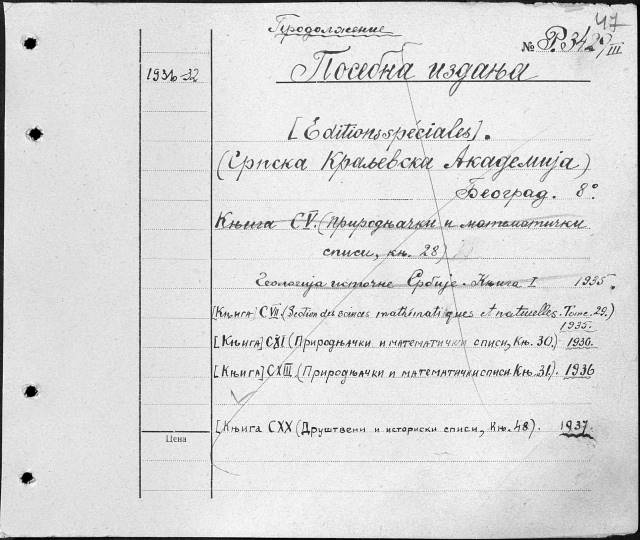 47
Продолжение
№ Р.342/III
1936-32
Посебна издања
[Editions spéciales].
(Српска Краљевска Академија)
Београд. 8°.
Књига CV. (Природњачки и математички
списи, књ. 28)
Геологија источне Србије. Књига I 1935.
[Књига] CVII. (Section des sciences mathématiques et naturelles. Tome. 29.)
1935.
[Књига] CXI (Природњачки и математички списи, Књ. 30.) 1936.
[Књига] CXIII. (Природњачки и математички списи. Књ. 31.) 1936
[Књига CXX (Друштвени и историски списи, Књ. 48). 1937.
Цена